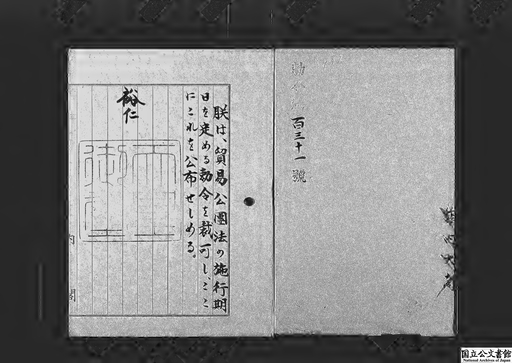 勅令
百三十一號
朕は、貿易公團法の施行期
日を定める勅令を裁可し、ここ
にこれを公布せしめる。
裕仁
内閣
国立公文書館
National Archives of Japan